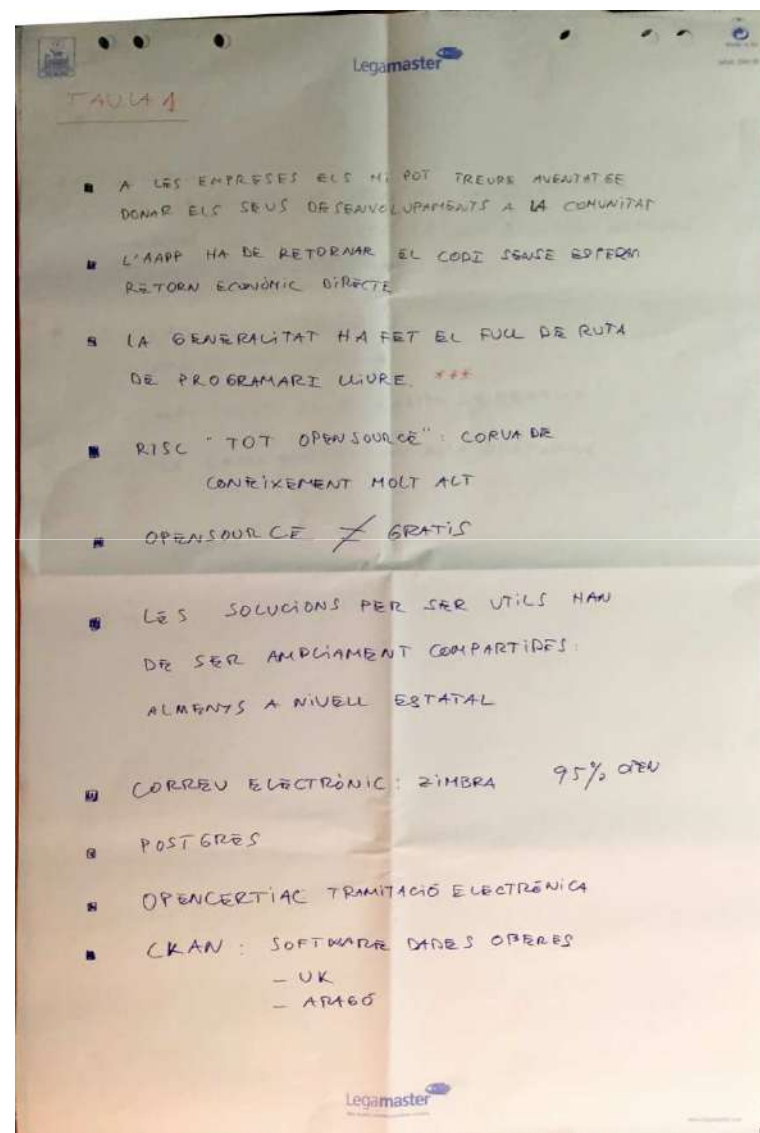 Legamaster
TAULA 1
A LES EMPRESES ELS HI POT TREURE AVENTATGE
DONAR ELS SEUS DESENVOLUPAMENTS A LA COMUNITAT
L'AAPP HA DE RETORNAR EL CODI SENSE ESPERAR
RETORN ECONÒMIC DIRECTE
LA GENERALITAT HA FET EL FULL DE RUTA
DE PROGRAMARI LLIURE. ***
RISC "TOT OPENSOURCE": CORVA DE
CONEIXEMENT MOLT ALT
OPENSOURCE ≠ GRATIS
LES SOLUCIONS PER SER UTILS HAN
DE SER AMPLIAMENT COMPARTIDES:
ALMENYS A NIVELL ESTATAL
CORREU ELECTRÒNIC: ZIMBRA 95% OPEN
POSTGRES
OPENCERTIAC TRAMITACIÓ ELECTRÒNICA
CKAN: SOFTWARE DADES OBERES
- UK
- ARAGÓ
Legamaster